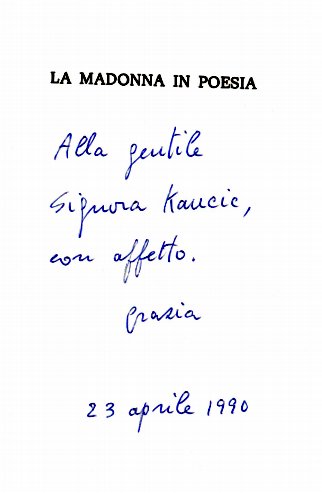 LA MADONNA IN POESIA
Alla gentile
Signora Kaucic,
con affetto.
Grazia
23 aprile 1990